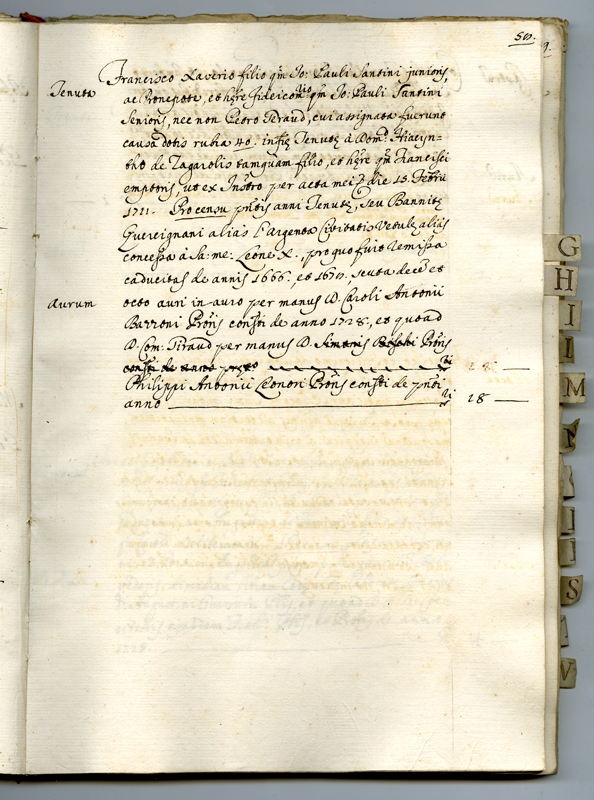 59.
9.
Tenuta
Francisco Xaverio filio qm̃ Jo: Pauli Santini junioris,
ac Pronepote, et hẽre fideicom̃rio qm̃ Jo: Pauli Santini
senioris, nec non Petro Tiraud, cui assignata fuerunt
causa dotis rubia 40. infrẽ Tenutẽ à Dom: Hiacyn-
tho de Zagarolis tamquam filio, et hẽre qm̃ Francisci
emptoris, ut ex Instro per acta mei die 15. Febrii
1711. Pro censu pñtis anni Tenutẽ, seu Bannitẽ
Quercignani alias l'argenta Civitatis Vetulẽ alias
concessa à Sa: me: Leone X., pro quo fuit remissa
caducitas de annis 1666. et 1670. scuta decẽ et
Aurum
octo auri in auro per manus D. Caroli Antonii
Barzoni Prõris constti de anno 1728., et quoad
D. Com: Tiraud per manus D. Prõris
Philippi Antonii Leonori Prõris constti de pñti
anno
18
G
H
I
I
M
N
I
I
S
V